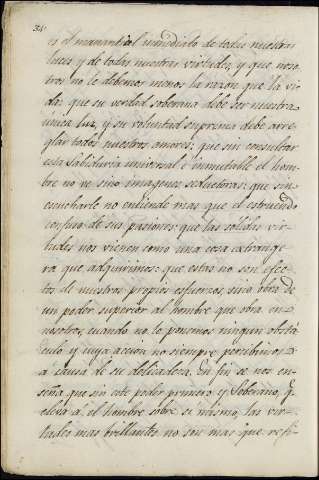 34
es el manantial inmediato de todas nuestras
luces y de todas nuestras virtudes, y que noso-
tros no le debemos menos la razon que la vi-
da: que su verdad soberana debe ser nuestra
unica luz, y su voluntad suprema debe arre-
glar todos nuestros amores: que sin consultar
esta Sabiduria universal é inmutable el hom-
bre no ve sino imagenes seductoras: que sin
escucharle no entiende mas que el estruendo
confuso de sus pasiones: que las solidas vir-
tudes nos vienen como una cosa extrange-
ra que adquirimos: que estas no son efec-
tos de nuestros propios esfuerzos, sino obra de
un poder superior al hombre que obra en
nosotros, cuando no le ponemos ningun obsta-
culo y cuya accion no siempre percibimos
á causa de su delicadeza. En fin se nos en-
seña que sin este poder primero y Soberano, q.
eleva á el hombre sobre si mismo, las vir-
tudes mas brillantes no son mas que refi-